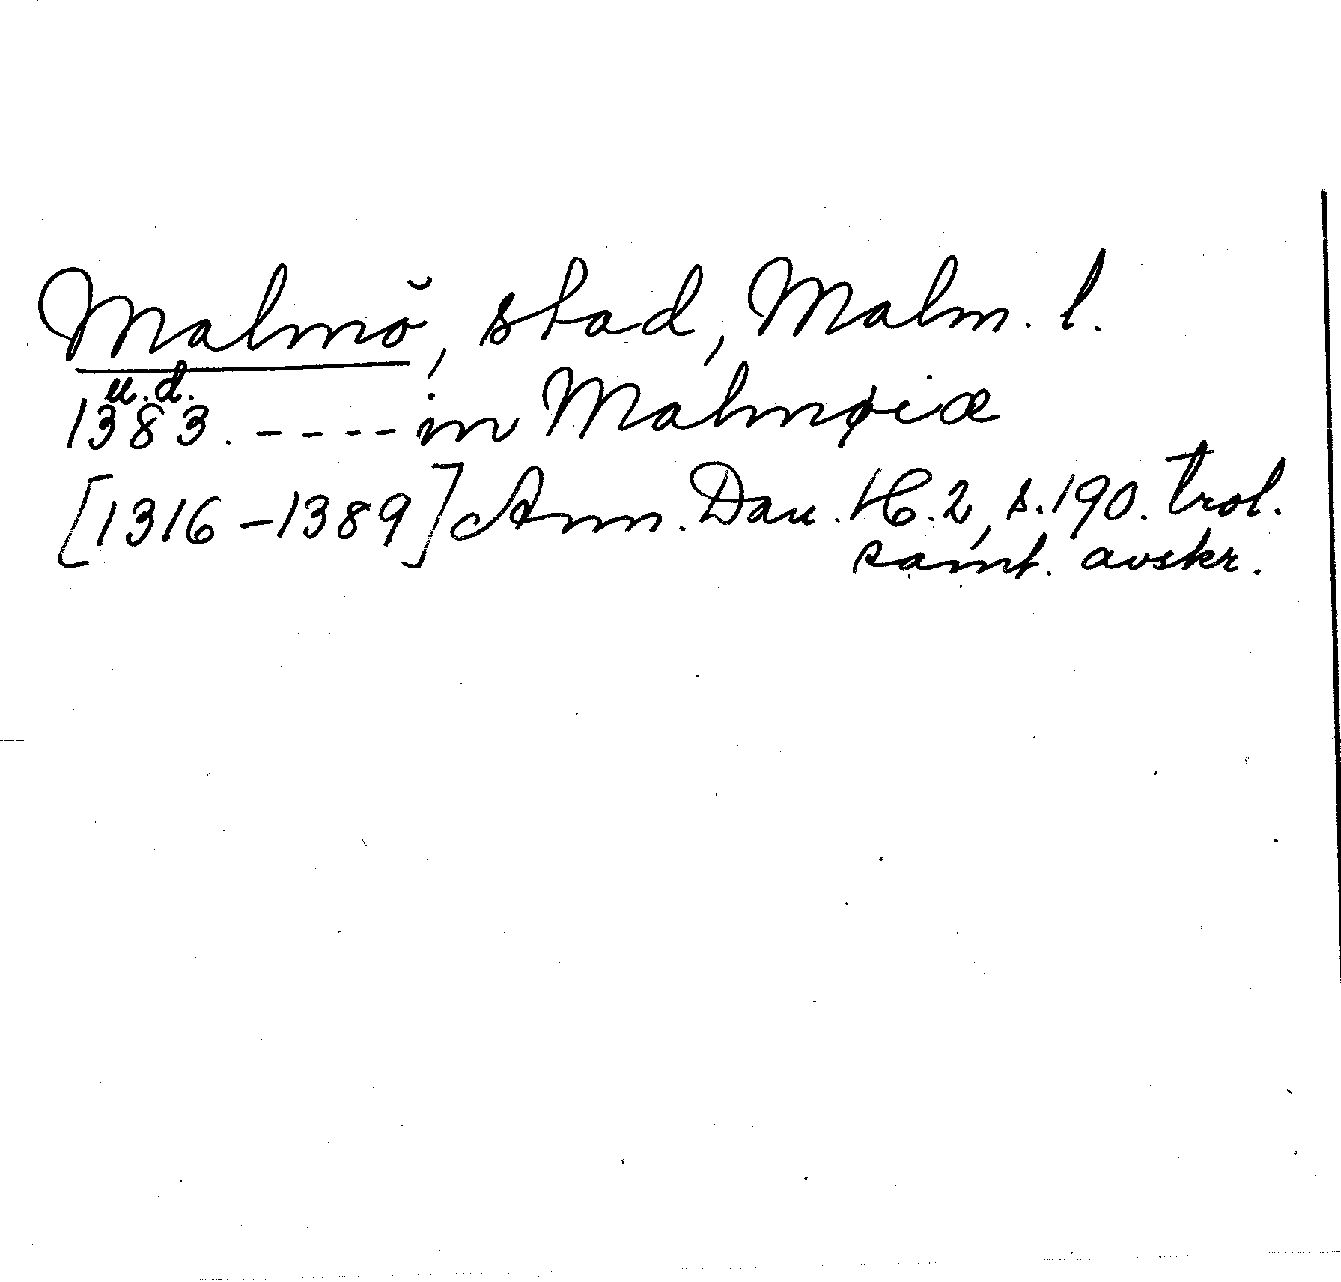 Malmö, stad, Malm. l.
u.d.
1383. ---- in Malmøiæ
[1316-1389] Ann. Dan. H. 2, s. 190. trol.
samt. avskr.